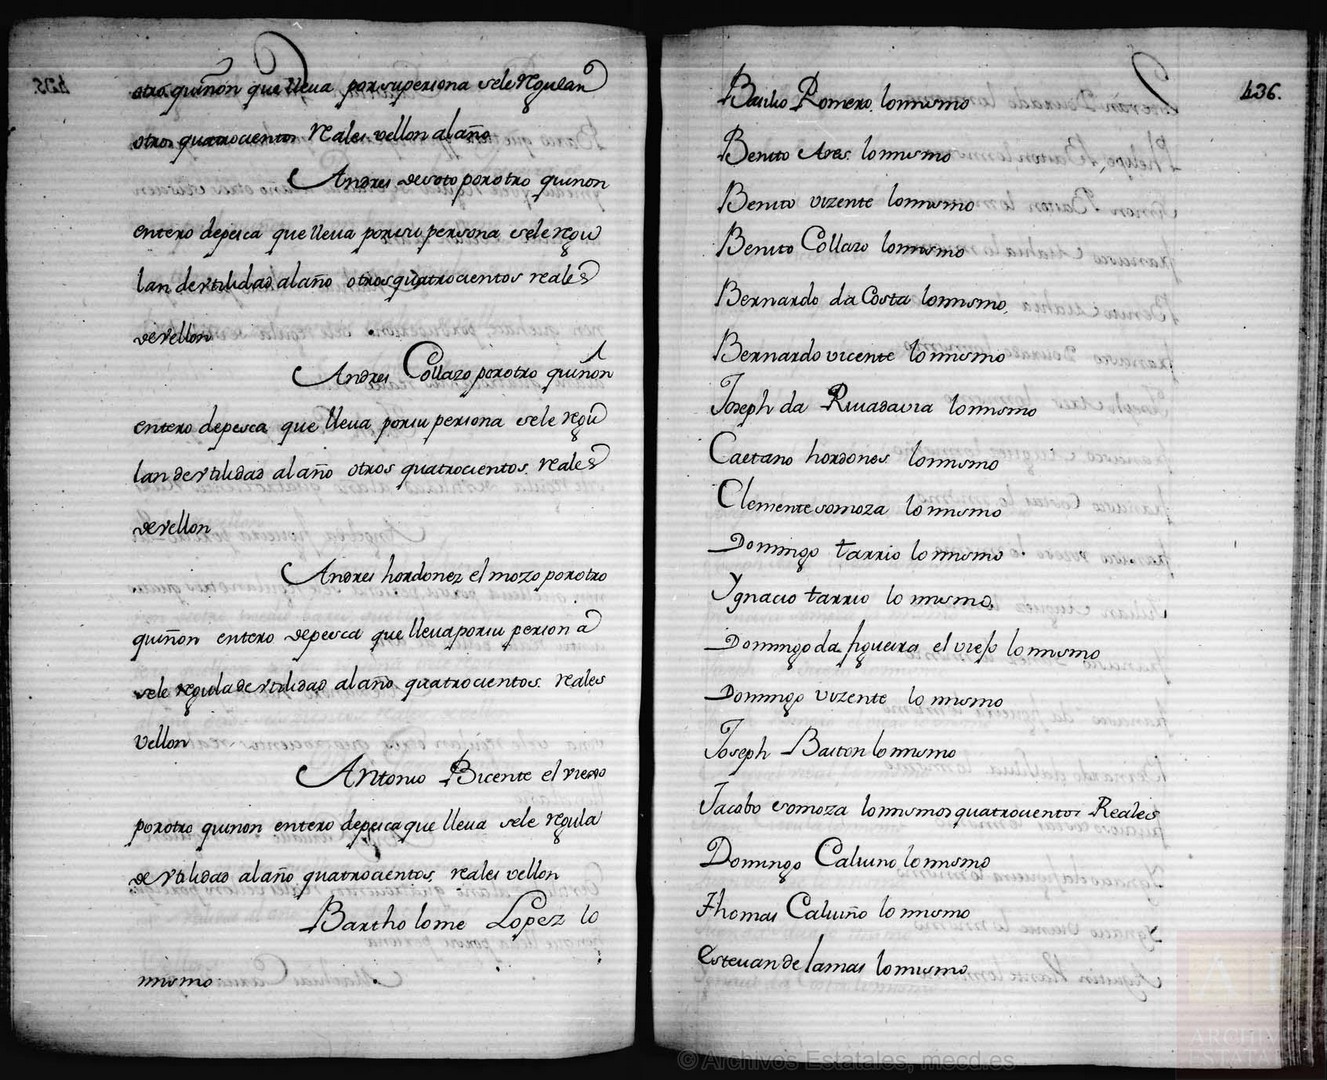 otro quiñon que lleua por su persona sele regulan
otros quatrocientos reales vellon al año
Andres de soto por otro quinon
entero de pesca que lleua por su persona sele regu
lan de vtilidad al año otros quatrocientos reales
de vellon
Andres Collazo por otro quiñon
entero de pesca que lleua por su persona sele regu
lan de vtilidad al año otros quatrocientos reales
de vellon
Andres hordonez el mozo por otro
quiñon entero de pesca que lleua por su persona
sele regula de vtilidad al año quatrocientos reales
vellon
Antonio Bicente el viejo
por otro quinon entero de pesca que lleua sele regula
de vtilidad al año quatrocientos reales vellon
Bartholome Lopez lo
mismo
436.
Basilio Romero lo mismo
Benito Ares lo mismo
Benito vizente lo mismo
Benito Collazo lo mismo
Bernardo da Costa lo mismo,
Bernardo vicente lo mismo
Joseph da Riuadauia lo mismo
Caetano hordones lo mismo
Clemente somoza lo mismo
Domingo tarrio lo mismo
Ygnacio tarrio lo mismo,
Domingo da figueira el viejo lo mismo
Domingo vizente lo mismo
Joseph Baston lo mismo
Jacobo somoza lo mismos quatrocientos Reales
Domingo Caluino lo mismo
Thomas Caluiño lo mismo
Esteuan de lamas lo mismo
© Archivos Estatales, mecd.es
ARCHIVOS
ESTATALES